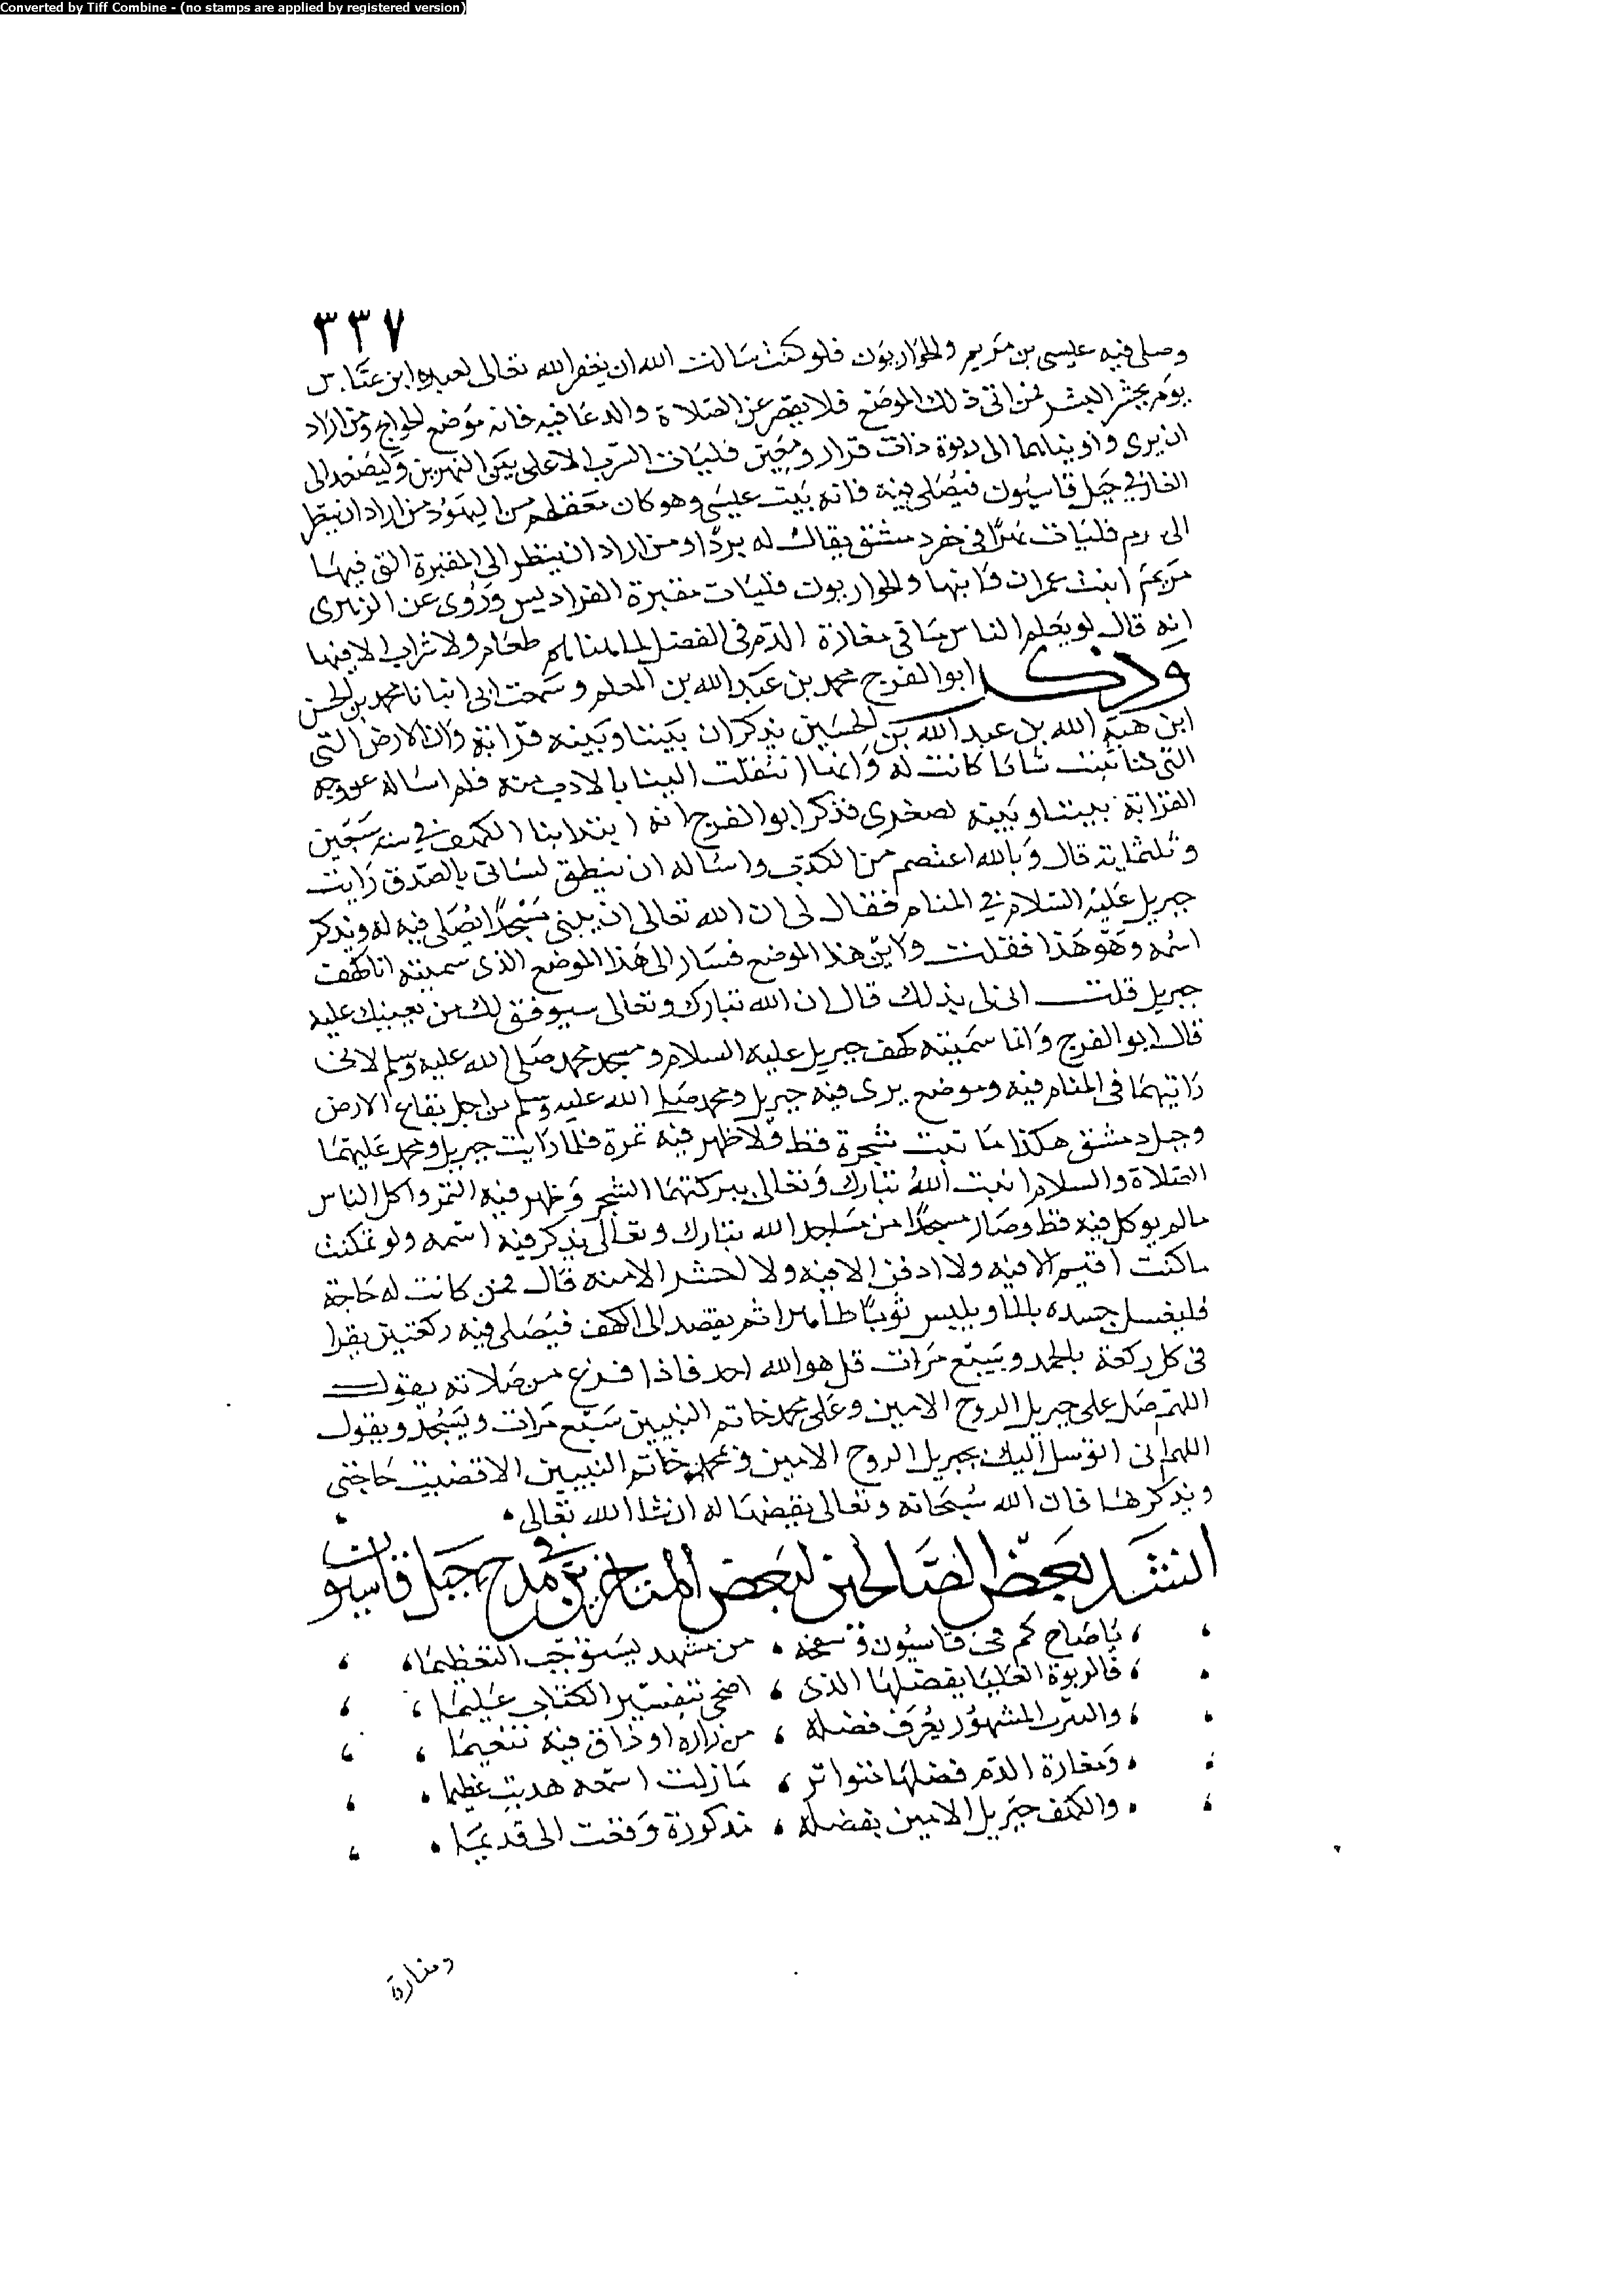 Converted by Tiff Combine - (no stamps are applied by registered version)
٣٣٧
وصلى فيه عيسى بن مريم والحواريون فلو كنت سالت الله ان يغفر الله تعالى لعبده ابن عباس
يوم يحشر البشر فمن اتى ذلك الموضع فلا يقصر عن الصلاة والدعا فيه فانه موضع الحوايج ومن اراد
ان يرى واويناهما الى ربوة ذات قرار ومعين فليات النيرب الاعلى بين النهرين وليصعد الى
الغار في جبل قاسيون فيصلى فيه فانه بيت عيسى وهو كان معقلهم من اليهود ومن اراد ان ينظر
الى ارم فليات نهرا فى حفر دمشق يقال له بردا ومن اراد ان ينظر الى المقبرة التى فيها
مريم ابنت عمران وابنها والحواريون فليات مقبرة الفراديس وروى عن الزهرى
انه قال لو يعلم الناس ما فى مغارة الدم فى الفضل لما هنا لهم طعام ولا شراب الا فيها
وذكر ابو الفرج محمد بن عبد الله بن المعلم وسمعت ابى انبانا محمد بن الحسن
ابن هبة الله بن عبد الله بن الحسين يذكر ان بيننا وبينه قرابة وان الارض التى
التى كانت له وانما انتقلت الينا بالارث منه فلم اساله عن وجه
القرابة بيننا وبينه لصغرى فذكر ابو الفرج انه ابتدا بنا الكهف في سنة سبعين
وثلثماية قال وبالله اعتصم من الكذب واساله ان ينطق لسانى بالصدق رايت
جبريل عليه السلام في المنام فقال لى ان الله تعالى ان يبنى مسجدا يصلى فيه له ويذكر
اسمه وهو هذا فقلت واين هذا الموضع فسار الى هذا الموضع الذى سميته انا كهف
جبريل قلت انى لى بذلك قال ان الله تبارك وتعالى سيوفق لك من يعينك عليه
قال ابو الفرج وانما سميته كهف جبريل عليه السلام ومسجد محمد صلى الله عليه وسلم لانى
رايتهما فى المنام فيه وموضع يرى فيه جبريل ومحمد صلى الله عليه وسلم من اجل بقاع الارض
وجبل دمشق هكذا ما نبت شجرة قط ولا ظهر فيه ثمرة فلما رايت جبريل ومحمد عليهما
الصلاة والسلام انبت الله تبارك وتعالى ببركتهما الشجر وظهر فيه الثمر واكل الناس
مالم يوكل فيه قط وصار مسجدا من مساجد الله تبارك وتعالى يذكر فيه اسمه ولو تمكنت
ماكنت اقيم الا فيه ولا ادفن الا فيه ولا احشر الا منه قال فمن كانت له حاجة
فليغسل جسده بالماء ويلبس ثوبا طاهرا ثم يقصد الى الكهف فيصلى فيه ركعتين يقرا
فى كل ركعة بالحمد وسبع مرات قل هو الله احد فاذا فرغ من صلاته يقول
اللهم صل على جبريل الروح الامين وعلى محمد خاتم النبيين سبع مرات ويسجد ويقول
اللهم انى اتوسل اليك بجبريل الروح الامين وبمحمد خاتم النبيين الا قضيت حاجتى
ويذكرها فان الله سبحانه وتعالى يقضيها له ان شا الله تعالى
انشد لبعض الصالحين لبعض المتاخرين في مدح جبل قاسيون
يا صاح كم فى قاسيون من مشهد يستوجب التعظيما
فالربوة العليا بفضلها الذى اضحى بتفسير الكتاب عليما
والنيرب المشهور يعرف فضله من زاره او ذاق فيه نعيما
ومغارة الدم فضلها متواتر مازلت اسمعه هديت عظيما
والكهف جبريل الامين بفضله مذكورة وقعت الى قديما
ومغارة